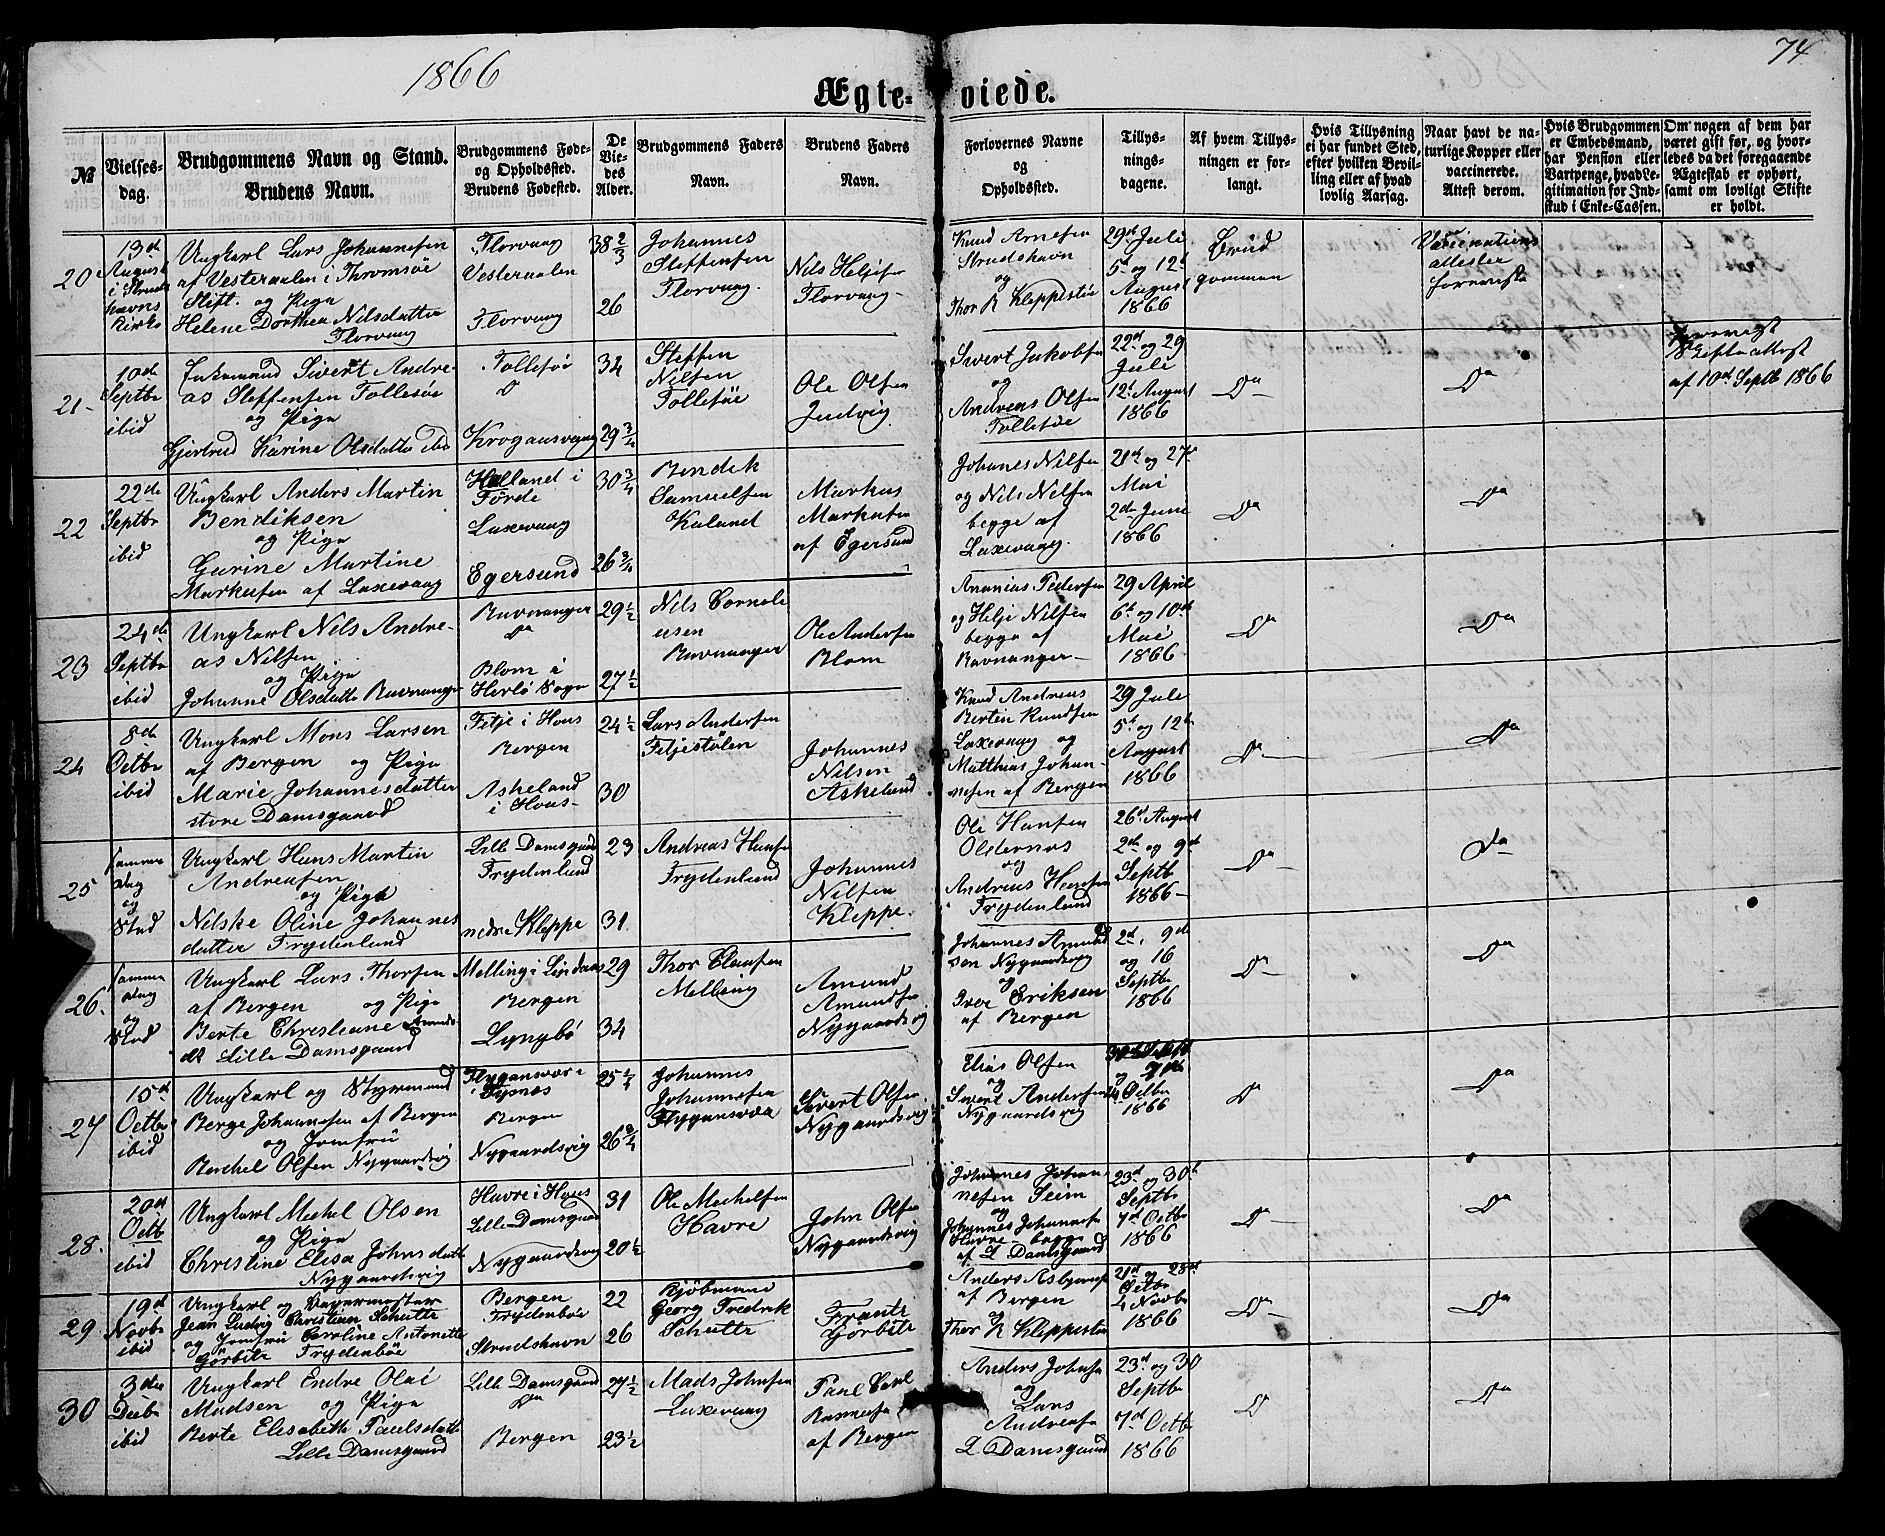 1866
74
Ægte=viede.
№
Vielses-
dag.
Brudgommens Navn og Stand.
Brudens Navn.
Brudgommens Føde-
og Opholdsted.
Brudens Fødested.
De
Vie-
des
Alder.
Brudgommens Faders
Navn.
Brudens Faders
Navn.
Forlovernes Navne
og
Opholdsted.
Tillys-
nings-
dagene.
Af hvem Tillys-
ningen er for-
langt.
Hvis Tillysning
ei har fundet Sted,
efter hvilken Bevil-
ling eller af hvad
lovlig Aarsag.
Naar havt de na-
turlige Kopper eller
vaccinerede.
Attest derom.
Hvis Brudgommen
er Embedsmand,
har Pension eller
Vartpenge, hvad Le-
gitimation for Ind-
skud i Enke-Cassen.
Om nogen af dem har
været gift før, og hvor-
ledes da det foregaaende
Ægteskab er ophørt,
samt om lovligt Skifte
er holdt.
20
13de
August
i Struds
havns
Kirke
Ungkarl Lars Johannesen
af Vesteraalen i Thromsöe
Stift. og Pige
Helene Dorthea Nilsdatter
Florvaag
Florvaag
Vesteraalen
Florvaag
38 2/3
26
Johannes
Steffensen
Florvaag.
Nils Heljesen
Florvaag
Knud Arnesen
Strudshavn
og
Thor K Kleppestöe
29de Juli
5te og 12te
August
1866
Brud
gommen
Vaccinations
attester
foreviste
21
10de
Septbr
ibid
Enkemand Sivert Andre-
as Steffensen Follesöe
og Pige
Gjertrud Karine Olsdatter ibd
Follesöe
Do
Krogansvaag
34
29 3/4
Steffen
Nilsen
Follesöe
Ole Olsen
Indvig
Sivert Jakobsen
og
Andreas Olsen
Follesöe
22de og 29
Juli
12te August
1866
Do
Do
Forevigt
Skifteattest
af 10de Septb 1866
22
22de
Septbr
ibid
Ungkarl Anders Martin
Bendiksen
og Pige
Gurine Martine
Markusen af Laxevaag
Halland i
Förde
Laxevaag
Egersund
30 3/4
26 3/4
Bendik
Samuelsen
Kaland
Markus
Markusen
af Egersund
Johanes Nilsen
og Nils Nilsen
begge af
Laxevaag.
21de og 27de
Mai
2de June
1866
Do
Do
23
24de
Septbr
ibid
Ungkarl Nils Andre-
as Nilsen
og Pige
Johanne Olsdatter Ravnanger
Ravnanger
Do
Blom i
Herlö Sogn
29 1/2
27 1/2
Nils Corneli
usen
Ravnanger
Ole Andersen
Blom
Ananias Pedersen
og Helje Nilsen
begge af
Ravnanger
29 April
6te og 10de
Mai
1866
Do
Do
24
8de
Octbr
ibid
Ungkarl Mons Larsen
af Bergen og Pige
Marie Johannesdatter
store Damsgaard
Fitje i Hous
Bergen
Askeland
i Hous
24 1/2
30
Lars Andersen
Fitjestölen
Johannes
Nilsen
Askeland
Knud Andreas
Bertin Knudsen
Laxevaag og
Matthias Johan-
nesen af Bergen
29 Jule
5te og 12te
August
1866
Do
Do
25
samme
Dag
og
Sted
Ungkarl Hans Martin
Andreasen
og Pige
Nilske Oline Johannes
datter Frydenlund
Lille Damsgaard
Frydenlund
nedre Kleppe
23
31
Andreas Hansen
Frydenlund
Johannes
Nilsen
Kleppe.
Ole Hansen
Oldernes
og
Andreas Hansen
Frydenlund
26de August
2de og 9de
Septb
1866
Do
Do
26.
samme
Dag
og
Sted
Ungkarl Lars Thorsen
af Bergen og Pige
Berte Christiane Amunds-
dt Lille Damsgaard
Melling i Lindaas
Bergen
Lyngbö
29
34
Thor Clausen
Melling
Amund
Amundsen
Nygaardsvig
Johannes Amund
sen Nygaardsvig
og
Iver Eriksen
af Bergen
2de, 9de
og 16
Septbr
1866
Do
Do
27
15de
Octbr
ibid
Ungkarl og Styrmand
Berge Johannesen af Bergen
og Jomfrü
Rachel Olsen Nygaardsvig
Flygansvær i
Tysnæs
Bergen
Nygaardsvig
25 1/4
26 3/4
Johannes
Johannesen
Flygansvær
Sivert Olsen
Nygaardsvig
Elias Olsen
og
Sivert Andersen
Nygaardsvig
30te Septb
og 7de
14 Octbr
1866
Do
Do
28.
20de
Octb
ibid
Ungkarl Mechel Olsen
og Pige
Christine Elisa Johnsdatter
Nygaardsvig
Havre i Hous
Lille Damsgaard
Nygaardsvig
31
20 1/2
Ole Mechelsen
Havre
John Olsen
Nygaardsvig
Johannes Johan
nesen Seim
og
Johannes Johannesen
Havre begge
af L Damsgaard
23de og 30te
Septbr
7de Octbr
1866
Do
Do
29
19de
Novbr
ibid
Ungkarl og Bagermester
Jean Ludvig Christian Schütte
og Jomfrü Caroline Antonette
Görbitz Frydenböe
Bergen
Frydenböe
Strudshavn
22
26
Kjöbmand
Georg Fredrik
Schütte
Frantz
Görbitz
Anders Asbjörnsen
af Bergen
og
Thor K Kleppestöe
21de og 28de
Octbr
4 Novbr
1866
Do
Do
30
3die
Decbr
ibid
Ungkarl Endre Olai
Madsen og Pige
Berte Elisabeth Paulsdatter
Lille Damsgaard
Lille Damsgaard
Do
Bergen
27 1/2
23 1/2
Mads Johnsen
Laxevaag
Paul Carl
Rasmusen
af Bergen
Anders Johnsen
og
Lars
Andreasen
L Damsgaard
23de og 30
Septbr
7de Octbr
1866
Do
Do